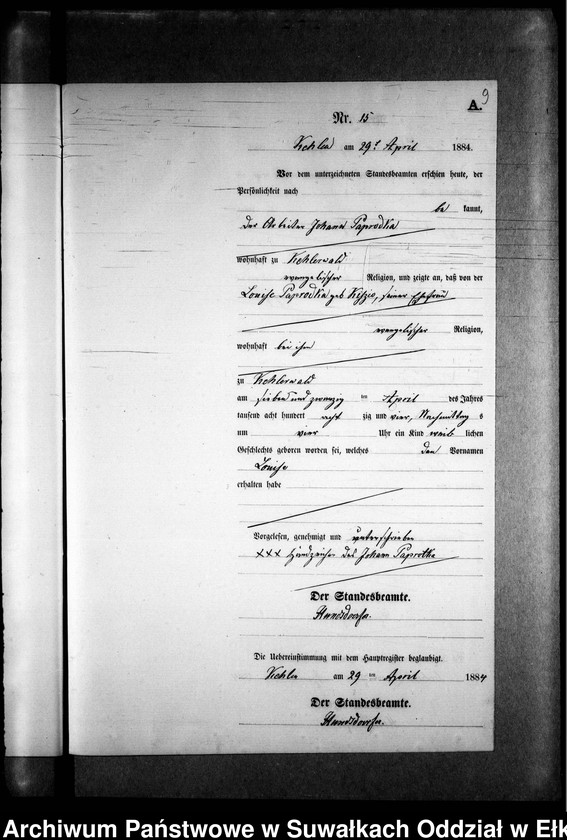 9
A.
Nr. 15
Kehlen am 29t April 1884.
Vor dem unterzeichneten Standesbeamten erschien heute, der
Persönlichkeit nach
be kannt,
der Arbeiter Johann Paprodka
wohnhaft zu Kehlerwald
evangelischer Religion, und zeigte an, daß von der
Louise Paprodka geb Kißzio, seiner Ehefrau
evangelischer Religion,
wohnhaft bei ihm
zu Kehlerwald
am sieben und zwanzig ten April des Jahres
tausend acht hundert acht zig und vier, Nachmittag s
um vier Uhr ein Kind weib lichen
Geschlechts geboren worden sei, welches den Vornamen
Louise
erhalten habe
Vorgelesen, genehmigt und unterschrieben
XXX Handzeichen des Johann Paprotka
Der Standesbeamte.
Die Uebereinstimmung mit dem Hauptregister beglaubigt.
Kehlen am 29 ten April 1884
Der Standesbeamte.
Archiwum Państwowe w Suwałkach Oddział w Ełk